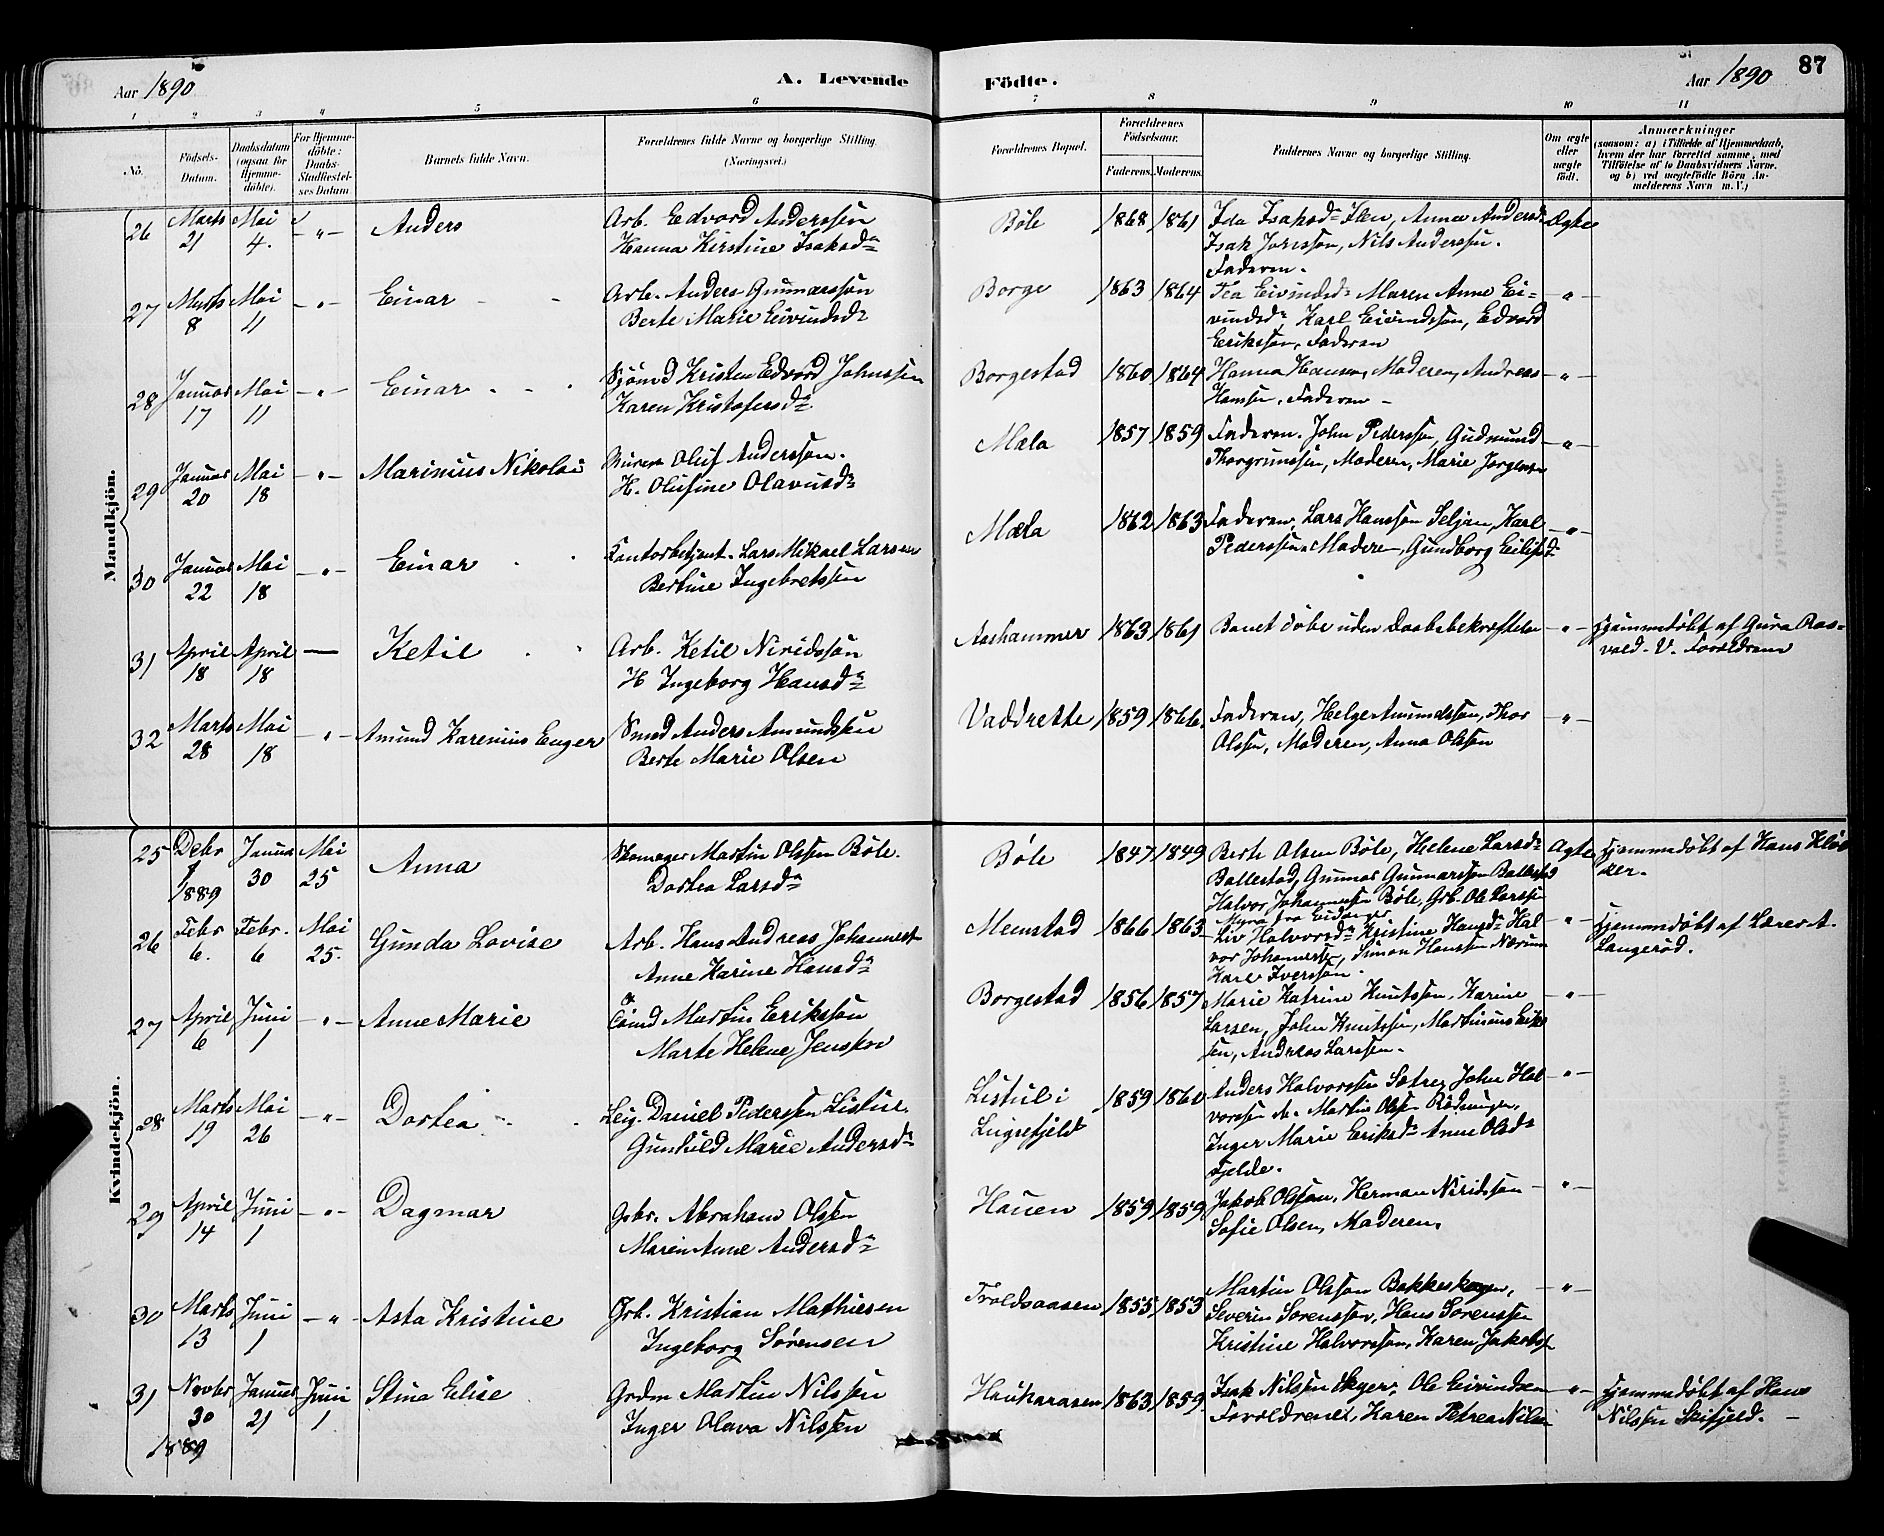 Aar 1890
A. Levende
Födte.
Aar 1890
87
1 2 3 4 5 6 7 8 9 10 11
No.
Födsels-
Datum.
Daabsdatum
(ogsaa for
Hjemme-
döbte).
For Hjemme-
döbte:
Daabs-
Stadfæstel-
ses Datum
Barnets fulde Navn.
Forældrenes fulde Navne og borgerlige Stilling.
(Næringsvei.)
Forældrenes Bopæl.
Forældrenes
Födselsaar.
Faderens. Moderens.
Faddernes Navne og borgerlige Stilling.
Om ægte
eller
uægte
født.
Anmærkninger
(saasom: a) i Tilfælde af Hjemmedaab,
hvem der har forrettet samme, med
Tilföielse af to Daabsvidners Navne.
og b) ved uægtefödte Börn An-
melderens Navn m. V.)
Mandkjön.
26 Marts 21 Mai 4. -"- Anders
Arb. Edvard Anderssen
Hanna Kirstine Isaksdr
Bøle 1868 1861
Ida Isaksdr Iken, Anna Andersdr
Isak Jonssøn, Nils Anderssen.
Faderen.
Ægte
27 Marts 8 Mai 11 -"- Einar
Arb. Anders Gunnarssøn
Berte Marie Eivindsdr
Borge 1863 1864
Tea Eivindsdr Maren Anne Ei-
vindsdr Karl Eivindssøn, Edvard
Erikssøn, Faderen
-"-
28 Januar 17 Mai 11 -"- Einar
Sjømd Kristen Edvard Johnssen
Karen Kristofersdr
Borgestad 1860 1864
Hanna Hansen, Moderen, Andreas
Hansen, Faderen
-"-
29 Januar 20 Mai 18 -"- Marinius Nikolai
Oluf Anderssøn.
H. Olufine Olavusdr
Mæla 1857 1859
Faderen. John Pederssen, Gudmund
Thorgrimssen, Moderen, Marie Jørgensen
-"-
30 Januar 22 Mai 18 -"- Einar
Kontorbetjent. Lars Mikael Larsen
Bertine Ingebretssen
Mæla 1862 1863
Faderen, Lars Hanssøn Seljan, Karl
Pederssen, Moderen, Gundborg
-"-
31 April 18 April 18 — Ketil
Arb. Ketil Niridssøn
H Ingeborg Hansdr
Aashammer 1863 1861
Barnet døbe uden Daabsbekræftelse
-"-
Hjemmedøbt af Gura Aas-
vald. V. Forældrene
32 Marts 28 Mai 18 -"- Amund Karenius Enger
Smed Anders Amundssen
Berte Marie Olsen
Vaddrette 1859 1866
Faderen, Helge Amundssøn, Thor
Olssen, Moderen, Anna Olssen
-"-
Kvindekjön.
25 Debr 1889 Janua 30 Mai 25 Anna
Skomager Martin Olssen Bøle.
Dortea Larsdr
Bøle 1847 1849
Berte Olsen Bøle, Helene Larsdr
Ballestad, Gunnar Gunnarssøn Ballestad
Halvor Johannessen Bøle, Grb. Ole Larssen
Myra fra Eidanger
Ægte
Hjemmedøbt af Hans Klok
ker.
26 Febr 6. Febr. 6 Mai 25. Gunda Lovise
Arb. Hans Andreas Johannes
Anne Karine Hansdr
Menstad 1866 1863
Liv Halvorsdr Kristine Hansdr Hal
vor Johannessen, Simon Hanssen Nærum
Karl Iverssøn.
-"-
Hjemmedøbt af Lærer A.
Langerød.
27 April 6 Juni 1 -"- Anne Marie
Martin Erikssøn
Marte Helene Jenssen
Borgestad 1856 1857
Marie Katrine Knutssøn, Karine
Larsen, John Knutssøn, Martinius Erik
sen, Andreas Larssen.
-"-
28 Marts 19 Mai 26 -"- Dortea
Leig. Daniel Pederssen Listul.
Gunhild Marie Andersdr
Listul i
Luggefjeldt
1859 1861
Anders Halvorssen Sætre, John Hal
vorssen do. Martin Olssen Rødningen,
Inger Marie Eriksdr Anne Olsdr
Fjelde.
-"-
29 April 14 Juni 1 -"- Dagmar
Grbr. Abraham Olsen
Maren Anne Andersdr
Hauen 1859 1859
Jakob Olssøn, Herman Niridssøn
Sofie Olsen, Moderen.
-"-
30 Marts 13 Juni 1 -"- Asta Kristine
Grb. Kristian Mathiesen
Ingeborg Sørensen
Troldsaasen 1855 1853
Martin Olssøn Bakkeskogen,
Severin Sorenssøn, Hans Sorenssen
Kristine Halvorssøn, Karen Jakobss
-"-
31 Novbr 30 1889 Januar 21 Juni 1 Stina Elise
Grdm Martin Nilssen
Inger Olava Nilssen
Haukaraasen 1863 1859
Isak Nilssen Skyer, Ole Eivindsen
Forældrene, Karen Petrea Nilsen
-"-
Hjemmedøbt af Hans
Nilssen Skifjeld.